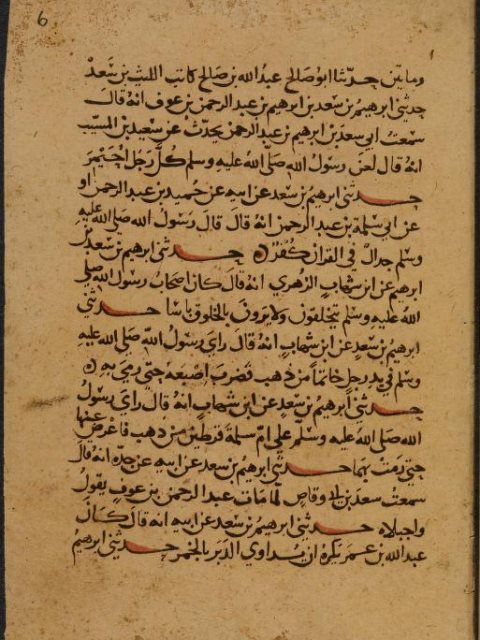 6
ومايتين حدثنا ابو صالح عبد الله بن صالح كاتب الليث بن سعد
حدثني ابرهيم بن سعد بن ابرهيم بن عبد الرحمن بن عوف انه قال
سمعت ابي سعد بن ابرهيم بن عبد الرحمن يحدث عن سعيد بن المسيب
انه قال لعن رسول الله صلى الله عليه وسلم كل رجل
حدثني ابرهيم بن سعد عن ابيه عن حميد بن عبد الرحمن او
عن ابي سلمة بن عبد الرحمن انه قال قال رسول الله صلى الله عليه
وسلم جدال في القران كفر حدثني ابرهيم بن سعد بن
ابرهيم عن ابن شهاب الزهري انه قال كان اصحاب رسول الله صلى
الله عليه وسلم يتخلقون ولا يرون بالخلوق باسا حدثني
ابرهيم بن سعد عن ابن شهاب انه قال راى رسول الله صلى الله عليه
وسلم في يد رجل خاتما من ذهب فضرب اصبعه حتى رمى به
حدثني ابرهيم بن سعد عن ابن شهاب انه قال راى رسول
الله صلى الله عليه وسلم على ام سلمة قرطين من ذهب فاعرض عنها
حتى رمت بهما حدثني ابرهيم بن سعد عن ابيه عن جده انه قال
سمعت سعد بن ابي وقاص لما مات عبد الرحمن بن عوف يقول
واجبلاه حدثني ابرهيم بن سعد عن ابيه انه قال كان
عبد الله بن عمر يكره ان يداوي الدبر بالخمر حدثني ابرهيم